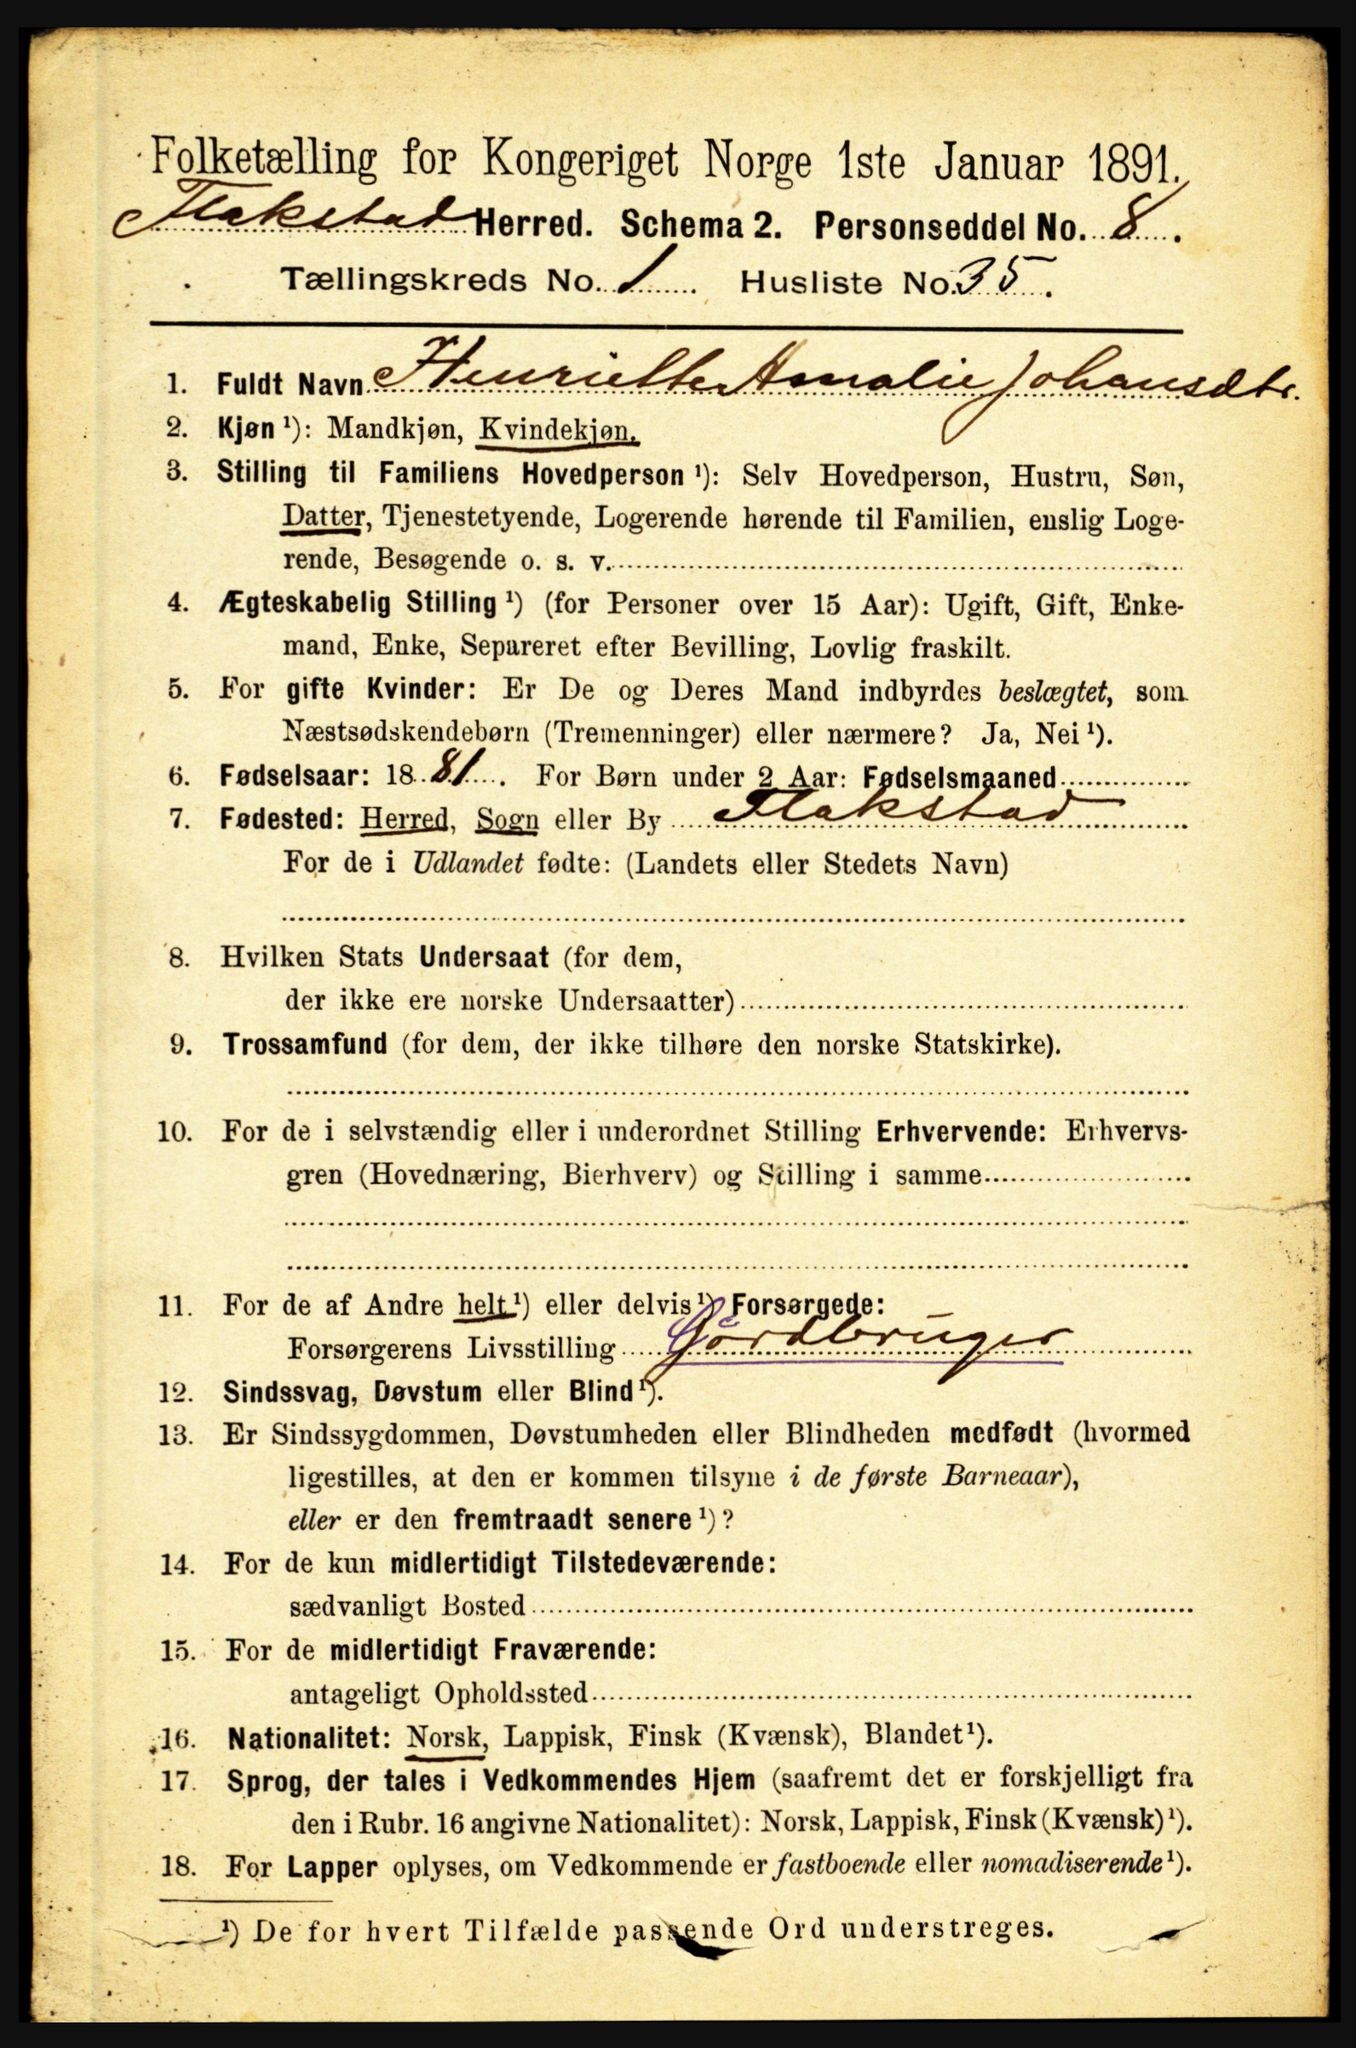 Folketælling for Kongeriget Norge 1ste Januar 1891.
Flakstad Herred. Schema 2. Personseddel No. 8.
Tællingskreds No. 1 Husliste No. 35.
1. Fuldt Navn Henriette Amalie Johansdtr.
2. Kjøn ¹): Mandkjøn, Kvindekjøn.
3. Stilling til Familiens Hovedperson ¹): Selv Hovedperson, Hustru, Søn,
Datter, Tjenestetyende, Logerende hørende til Familien, enslig Loge-
rende, Besøgende o. s. v.
4. Ægteskabelig Stilling ¹) (for Personer over 15 Aar): Ugift, Gift, Enke-
mand, Enke, Separeret efter Bevilling, Lovlig fraskilt.
5. For gifte Kvinder: Er De og Deres Mand indbyrdes beslægtet, som
Næstsødskendebørn (Tremenninger) eller nærmere? Ja, Nei ¹).
6. Fødselsaar: 1881. For Børn under 2 Aar: Fødselsmaaned
7. Fødested: Herred, Sogn eller By Flakstad
For de i Udlandet fødte: (Landets eller Stedets Navn)
8. Hvilken Stats Undersaat (for dem,
der ikke ere norske Undersaatter)
9. Trossamfund (for dem, der ikke tilhøre den norske Statskirke).
10. For de i selvstændig eller i underordnet Stilling Erhvervende: Erhvervs-
gren (Hovednæring, Bierhverv) og Stilling i samme
11. For de af Andre helt ¹) eller delvis ¹) Forsørgede:
Forsørgerens Livsstilling Gordbruger
12. Sindssvag, Døvstum eller Blind ¹).
13. Er Sindssygdommen, Døvstumheden eller Blindheden medfødt (hvormed
ligestilles, at den er kommen tilsyne i de første Barneaar),
eller er den fremtraadt senere ¹)?
14. For de kun midlertidigt Tilstedeværende:
sædvanligt Bosted
15. For de midlertidigt Fraværende:
antageligt Opholdssted
16. Nationalitet: Norsk, Lappisk, Finsk (Kvænsk), Blandet ¹).
17. Sprog, der tales i Vedkommendes Hjem (saafremt det er forskjelligt fra
den i Rubr. 16 angivne Nationalitet): Norsk, Lappisk, Finsk (Kvænsk) ¹).
18. For Lapper oplyses, om Vedkommende er fastboende eller nomadiserende ¹).
¹) De for hvert Tilfælde passende Ord understreges.